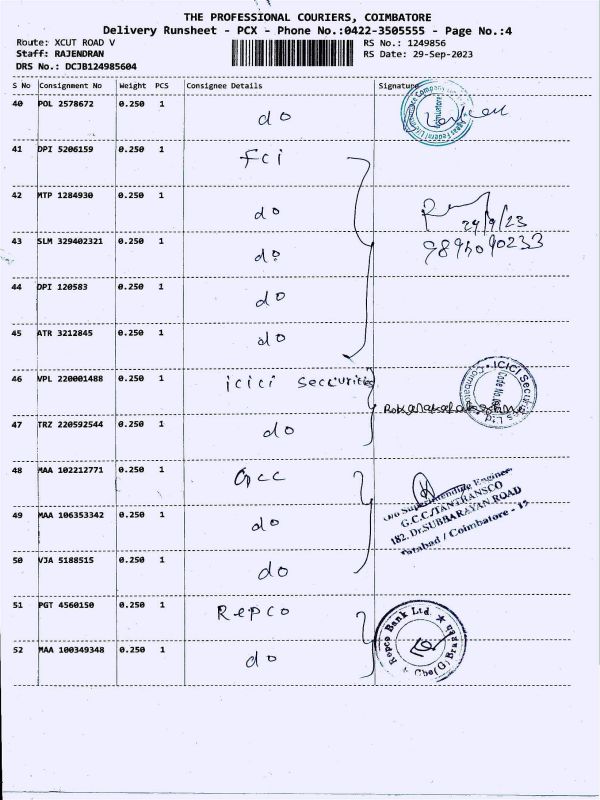 THE PROFESSIONAL COURIERS, COIMBATORE
Delivery Runsheet - PCX - Phone No.:0422-3505555 - Page No.:4
Route: XCUT ROAD V
RS No.: 1249856
Staff: RAJENDRAN
RS Date: 29-Sep-2023
DRS No.: DCJB124985604
S No Consignment No Weight PCS Consignee Details Signature
40 POL 2578672 0.250 1 do
41 DPI 5206159 0.250 1 fci
42 MTP 1284930 0.250 1 do
29/9/23
43 SLM 329402321 0.250 1 do
44 DPI 120583 0.250 1 do
45 ATR 3212845 0.250 1 do
46 VPL 220001488 0.250 1 icici
ICICI Securities Ltd
Coimbatore
47 TRZ 220592544 0.250 1 do
48 MAA 102212771 0.250 1 GCC
Superintending Engineer
G.C.C./TANTRANSCO
182, Dr.SUBBARAYAN ROAD
Tatabad / Coimbatore - 12
49 MAA 106353342 0.250 1 do
50 VJA 5188515 0.250 1 do
51 PGT 4560150 0.250 1 Repco
Repco Bank Ltd.
Cbe(G) Branch
52 MAA 100349348 0.250 1 do